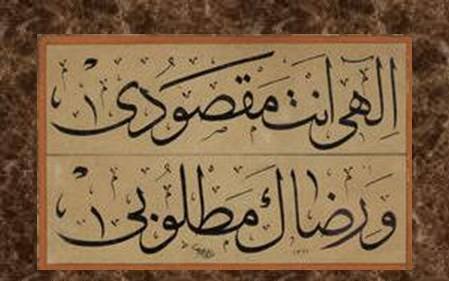 اِلٰهِى اَنْتَ مَقْصُودِى
وَرِضَاكَ مَطْلُوبِى